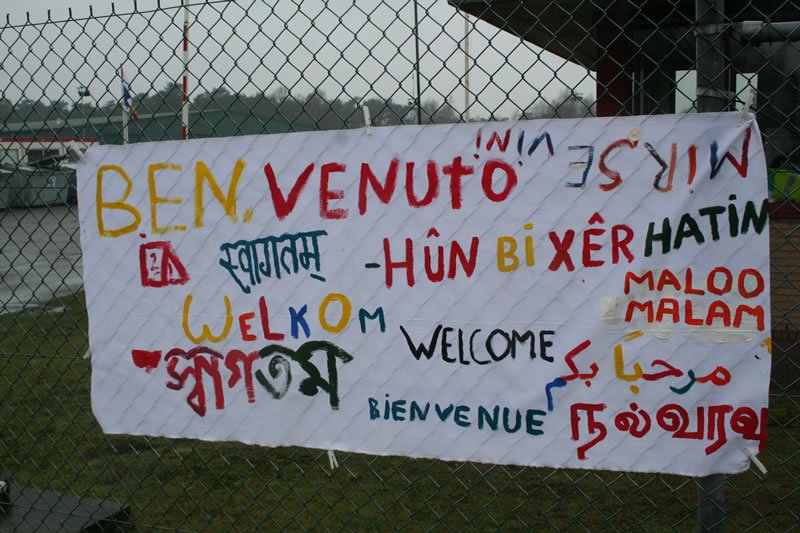 BEN,VENUTO
MIR'SE VINI
स्वागतम्
-HÛN BI XÊR HATIN
MALOO MALAM
WELKOM
WELCOME
مرحباً بكم
স্বাগতম
BIENVENUE
நல்வரவு